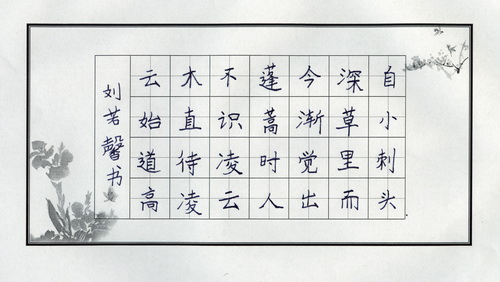 自小刺头
深草里而
今渐觉出
蓬蒿时人
不识凌云
木直待凌
云始道高
刘若馨书